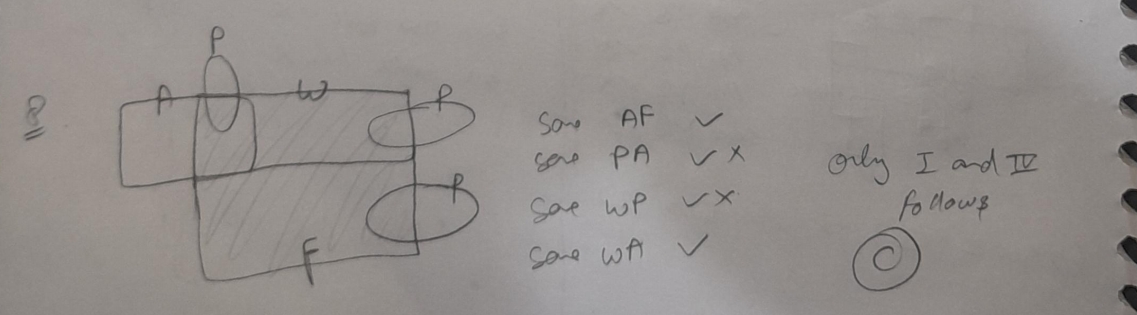 8
P
A
W
P
P
F
Some AF ✓
some PA ✓ x
Some WP ✓ x
Some WA ✓
Only I and IV
follows
C